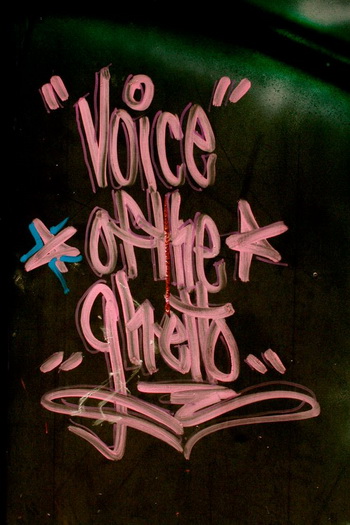 "Voice"
*of the*
"ghetto"